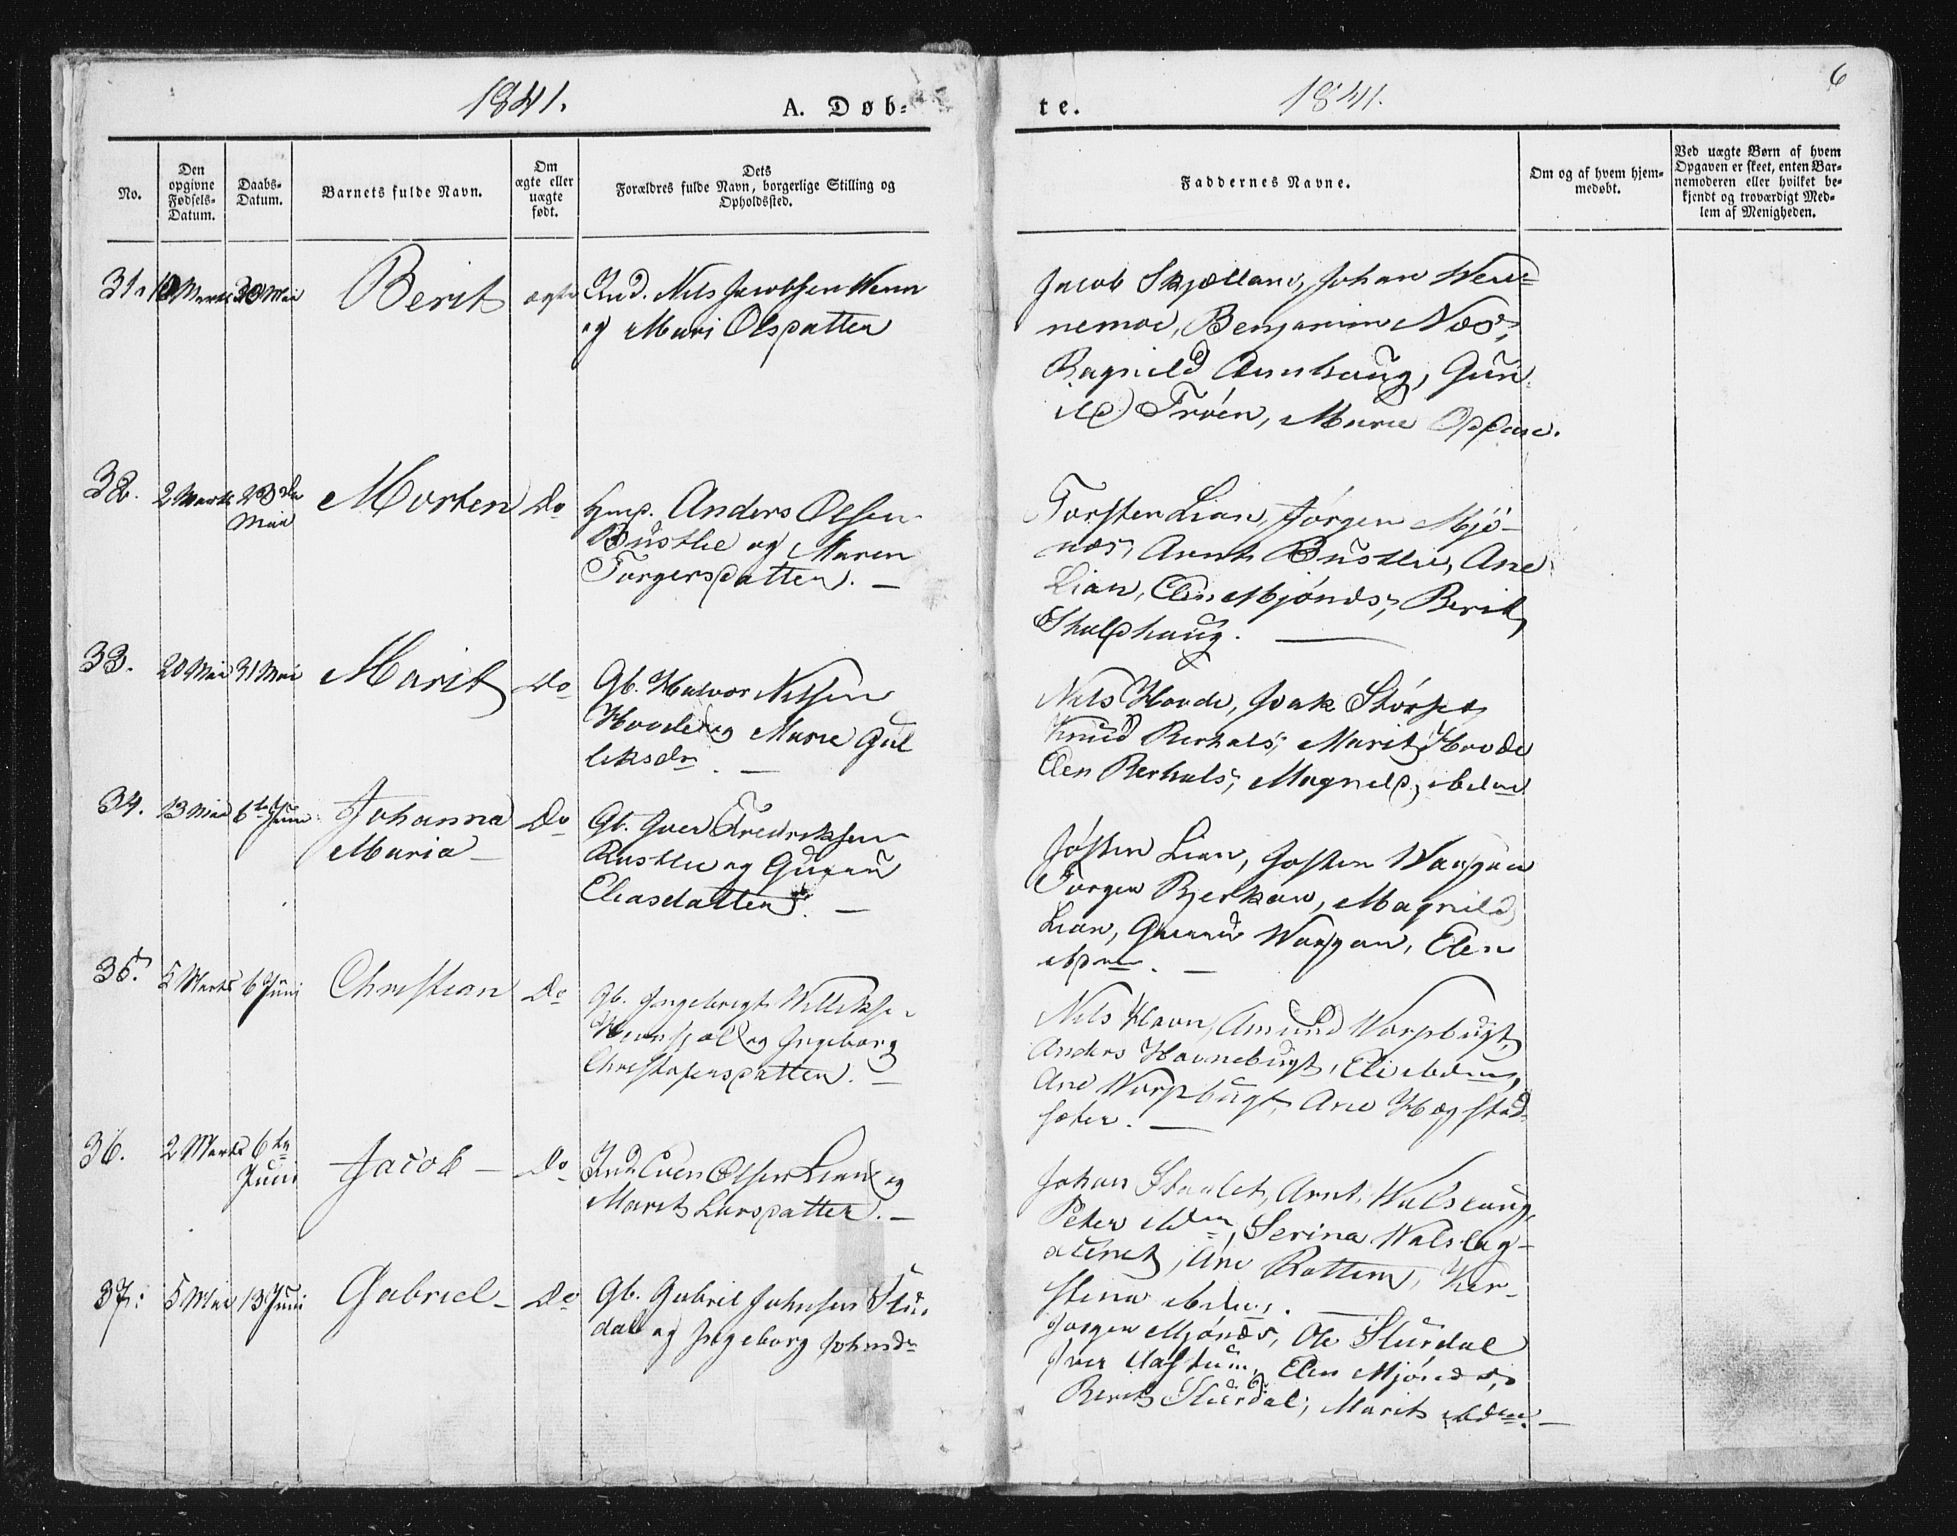 1841.
A. Døb-
te.
1841.
6
No.
Den
opgivne
Fødsels-
Datum.
Daabs-
Datum.
Barnets fulde Navn.
Om
ægte eller
uægte
født.
Dets
Forældres fulde Navn, borgerlige Stilling og
Opholdssted.
Faddernes Navne.
Om og af hvem hjem-
medøbt.
Ved uægte Børn af hvem
Opgaven er skeet, enten Bar-
nemoderen eller hvilket be-
kjendt og troværdigt Med-
lem af Menigheden.
31. Marts Mai Berit ægte Ind. Nils Jacobsen Wenn
og Mari Olsdatter
Jacob Skjølland, Johan Wen-
nemoe, Benjamin Næs,
Ragnild Aunhaug, Gun-
ild Trøen, Marie
32. 2 Marts 23de
Mai
Morten Do Anders Olsen
Bustlie og Maren
Torgersdatter. —
Torsten Lian, Jörgen Mjö-
næs, Arnt Bustlie, Ane
Lian, Elen Mjönæs, Berit
Skulphaug. —
33. 20 Mai 31 Mai Marit Do Gb. Halvor Nilsen
Hovde og Marie Gul
liksdr. —
Nils Hovde, Isak Störset
Knud Berhals, Marit Hovde
Elen Berhals, Magnild ibdm
34. 13 Mai 6te Juni Johanna
Maria — Do Gb. Iver Fredriksen
Rustlie og Gunnu
Eliasdatter. —
Jósten Lian, Josten Wangan
Torger Bjerkan, Magnild
Lian, Wangan, Elen
ibdm. —
35. 5 Marts 6 Juni Christian Do Gb. Ingebrigt Willikse
og Ingeborg
Christophersdatter. —
Nils Havn, Amund Worpbugt,
Anders Havnebugt, Eli ibdm,
Ane Worpbugt, Ane Hægstad-
sæter. —
36. 2 Marts 6te
Juni
Jacob — Do Ind. Even Olsen Lian og
Marit Larsdatter. —
Johan, Arnt
Peter ibdm, Serina
Ane Rottem, Ker-
stina ibdm. —
37. 5 Mai 13 Juni Gabriel — Do Gb. Gabriel Johnsen Stur
dal og Ingeborg Johnsdr
Jörgen Mjönæs, Ole Sturdal
Iver Aastum, Elen Mjönæs,
Berit Sturdal, Marit ibdm. —